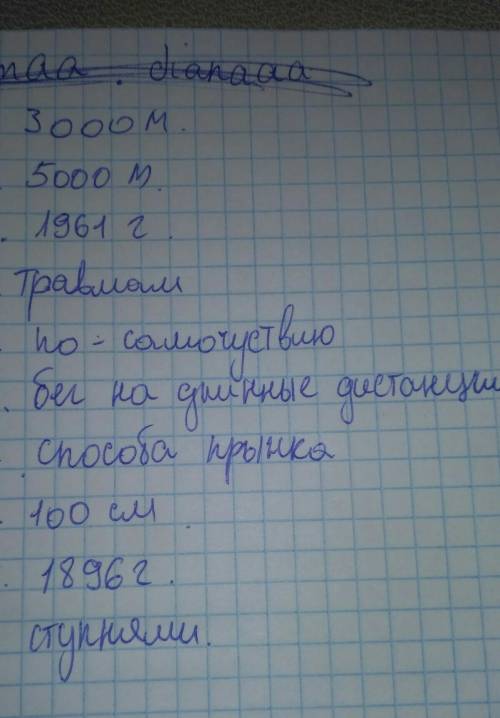 naa . dianaaa
3000 м.
5000 м.
. 1961 г.
травмам
. по - самочуствию
. бег на длинные дистанции
. способа прынка
. 100 см
. 1896 г.
ступнями.